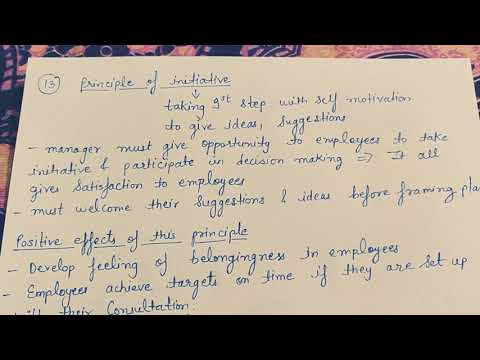 (13) Principle of initiative
↓
taking 1st step with self motivation
to give ideas, suggestions
- manager must give opportunity to employees to take
initiative & participate in decision making => It all
gives satisfaction to employees
- must welcome their suggestions & ideas before framing plan
Positive effects of this principle
- Develop feeling of belongingness in employees
- Employees achieve targets on time if they are set up
their Consultation.